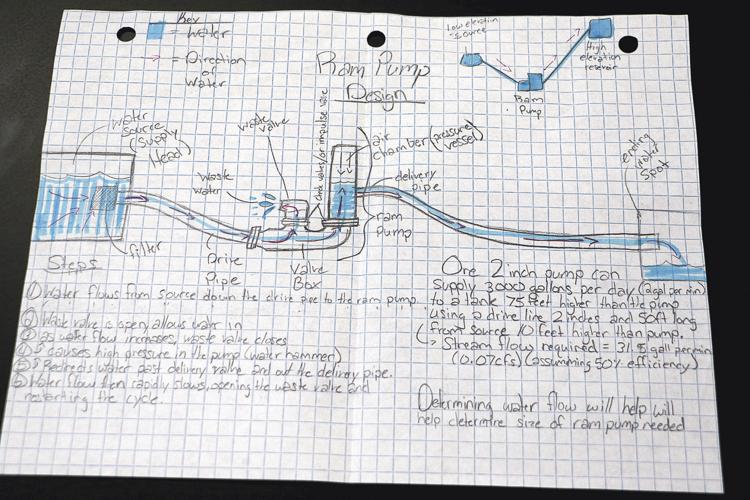 Key
= Water
= Direction
of
Water
Low elevation
source
High
elevation
reservoir
Ram
Pump
Ram Pump
Design
water
source
(supply
Head)
waste
valve
check valve/or impulse valve
air
chamber (pressure
vessel)
ending
water
spot
waste
water
delivery
pipe
ram
pump
filter
Drive
Pipe
Valve
Box
Steps
① Water flows from source down the drive pipe to the ram pump.
② Waste valve is open, allows water in
③ as water flow increases, waste valve closes
④ ↳ causes high pressure in the pump (water hammer)
⑤ ↳ Redirects water past delivery valve and out the delivery pipe.
⑥ Water flow then rapidly slows, opening the waste valve and
restarting the cycle.
One 2 inch pump can
supply 3000 gallons per day (2gal per min)
to a tank 75 feet higher than the pump
using a drive line 2 inches and 50ft long
from source 10 feet higher than pump.
↳ Stream flow required = 31.5 gall per min
(0.07cfs) (assuming 50% efficiency)
Determining water flow will help will
help determine size of ram pump needed